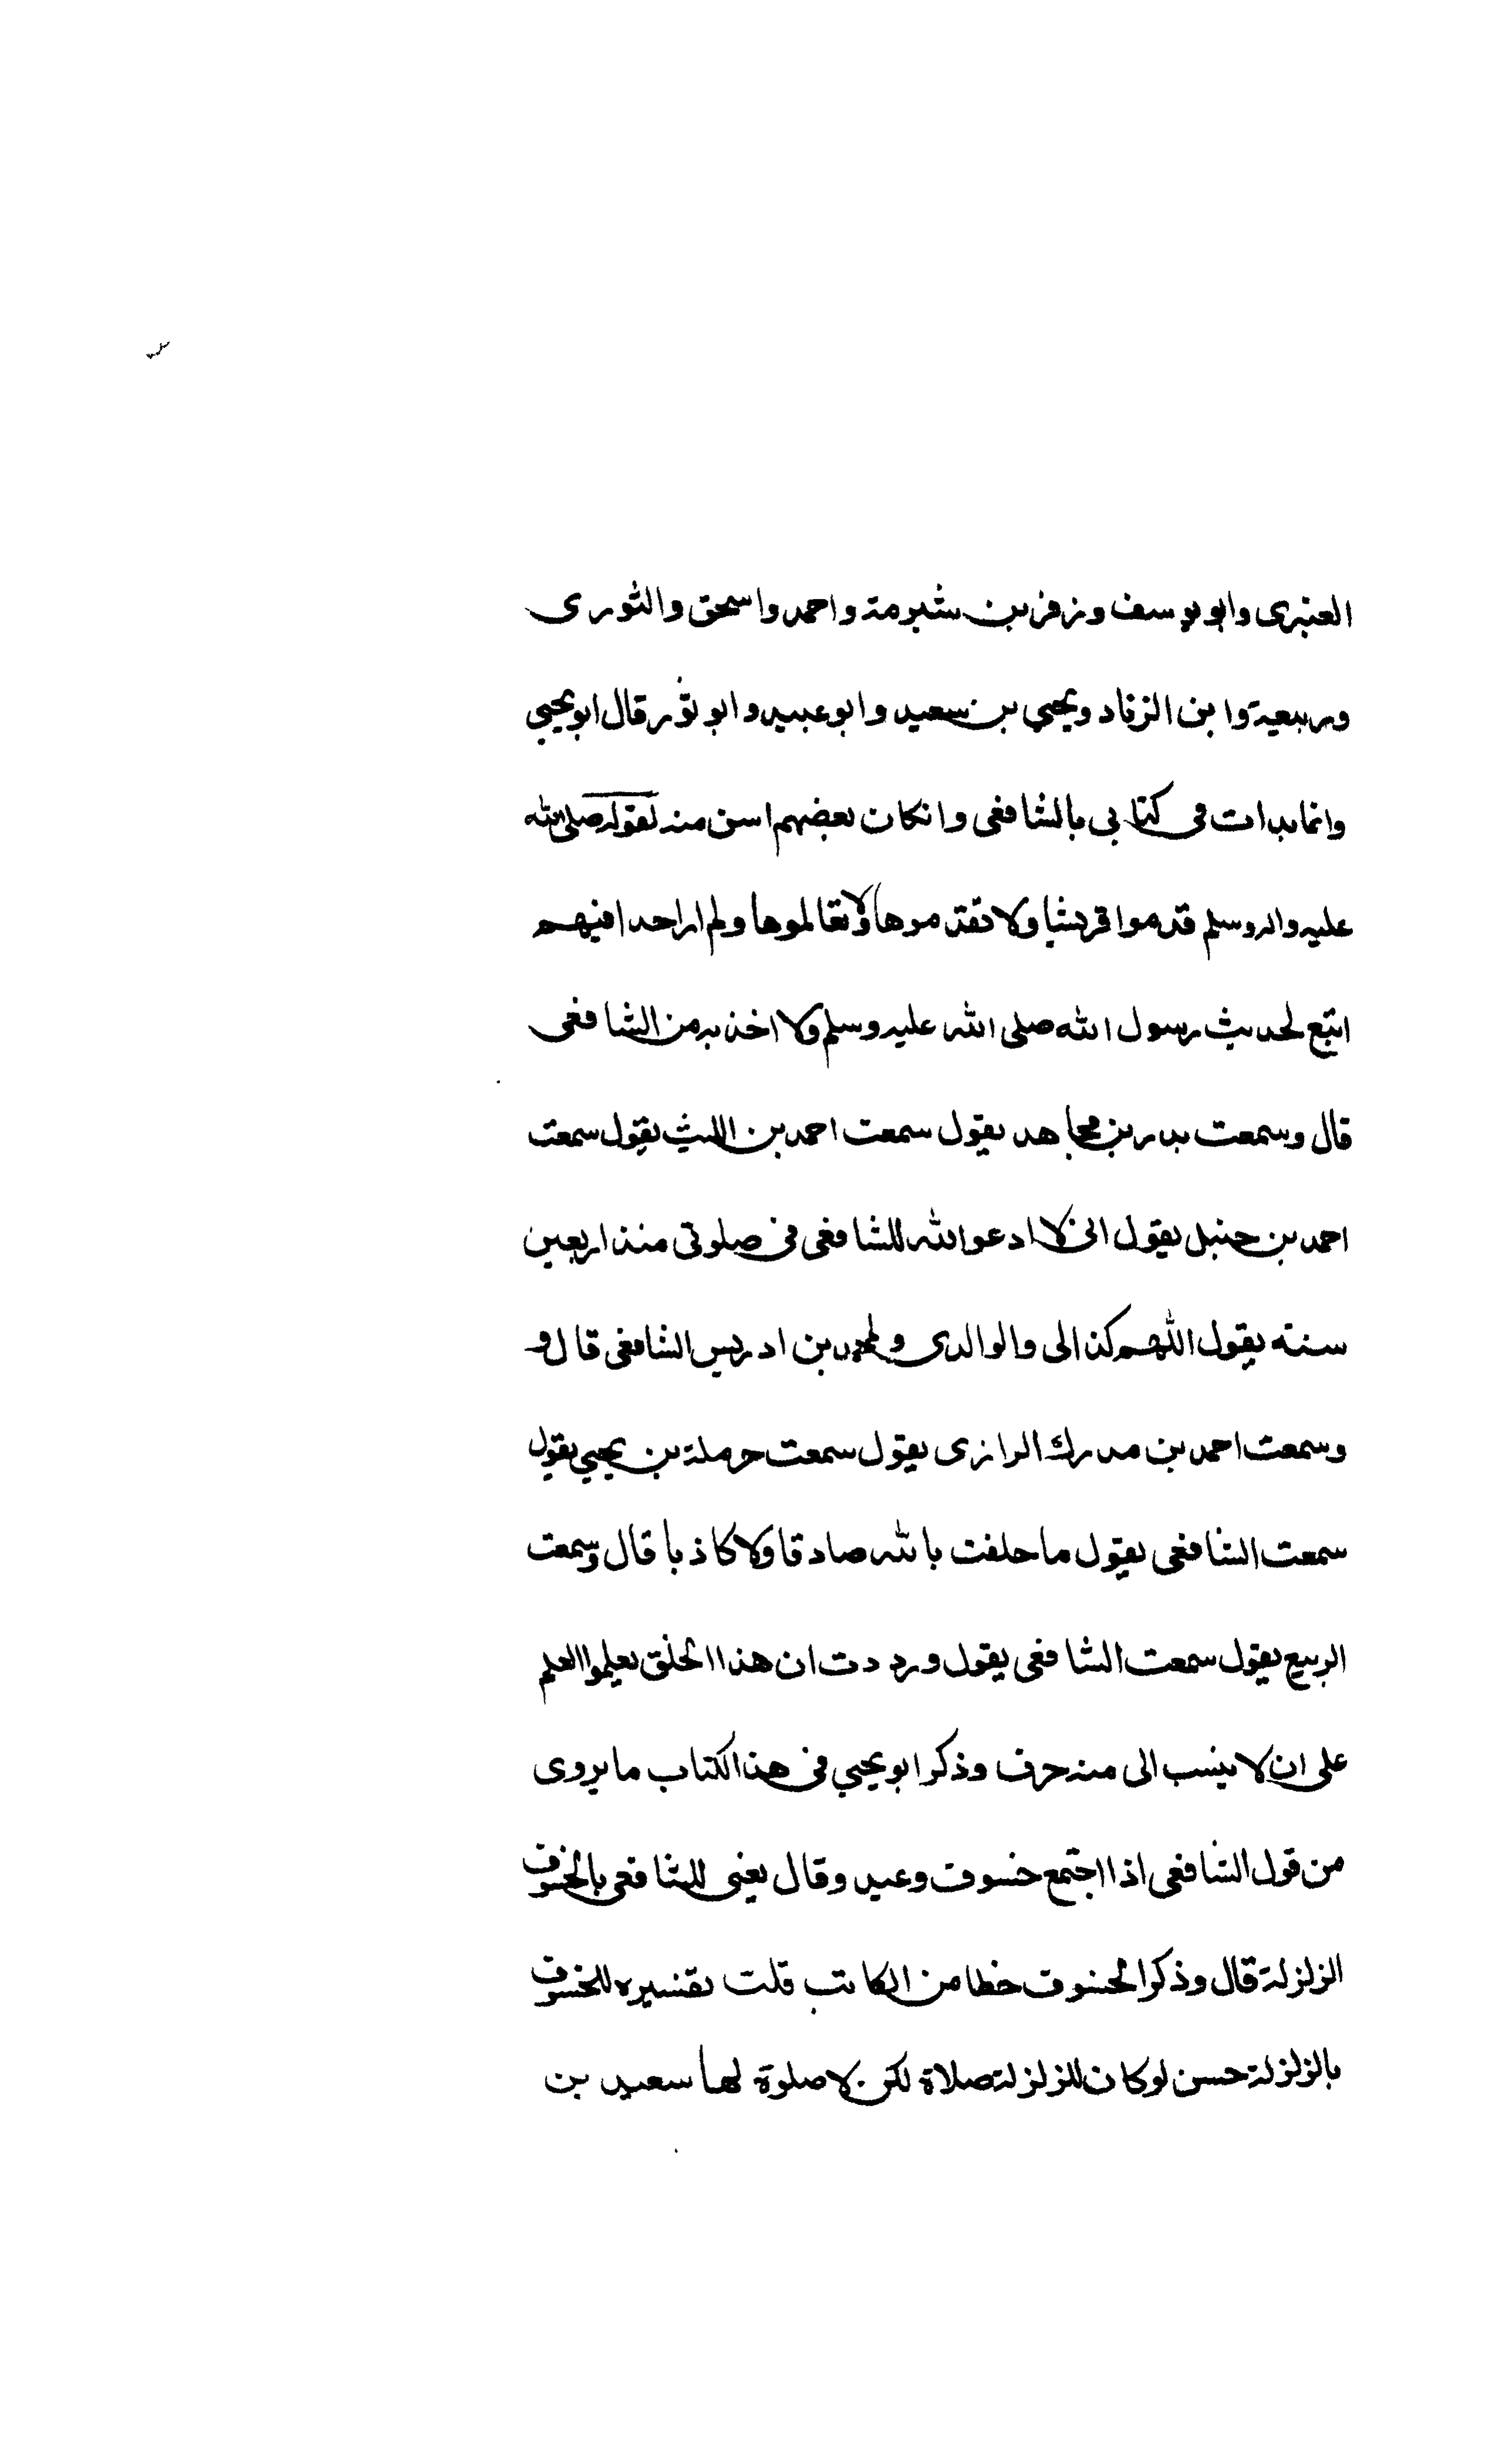 العنبرى وابو يوسف وزفر بن شبرمة واحمد واسحق والثورى
وربيعة وابن الزناد ويحيي بن سعيد وابو عبيد وابو ثور قال ابو يحيي
وانما بدات فى كتابى بالشافعى وانكان بعضهم اسن منه لقوله صلى الله
عليه واله وسلم قدموا قريشا ولا تقدموها ولا تعالموها ولم ار احدا فيهم
اتبع لحديث رسول الله صلى الله عليه وسلم ولا اخذ به من الشافعى
قال وسمعت بدر بن مجاهد يقول سمعت احمد بن الليث يقول سمعت
احمد بن حنبل يقول انى لا ادعو الله للشافعى فى صلوتى منذ اربعين
سنة يقول اللهم كذا لى والوالدى ولمحمد بن ادريس الشافعى قال و
وسمعت احمد بن مدرك الرازى يقول سمعت حرملة بن يحيي يقول
سمعت الشافعى يقول ما حلفت بالله صادقا ولا كاذبا قال وسمعت
الربيع يقول سمعت الشافعى يقول ورددت ان هذا الخلق تعلموا العلم
على ان لا ينسب الى منه حرف وذكر ابو يحيي فى هذا الكتاب ما يروى
من قول الشافعى اذا اجتمع خسوف وعيد وقال يعنى للشافعى بالخسوف
الزلزلة قال وذكر الخسوف خطا من الكاتب قلت تفسيره للخسوف
بالزلزلة حسن لو كان للزلزلة صلاة لكن لا صلوة لها سعيد بن